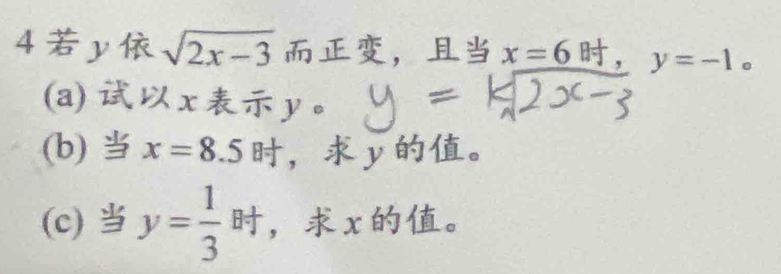 4 若 y 依 √(2x−3) 而正变，且当 x=6 时，y=−1。
(a) 试以 x 表示 y。 y = k√(2x−3)
(b) 当 x=8.5 时，求 y 的值。
(c) 当 y=1/3 时，求 x 的值。